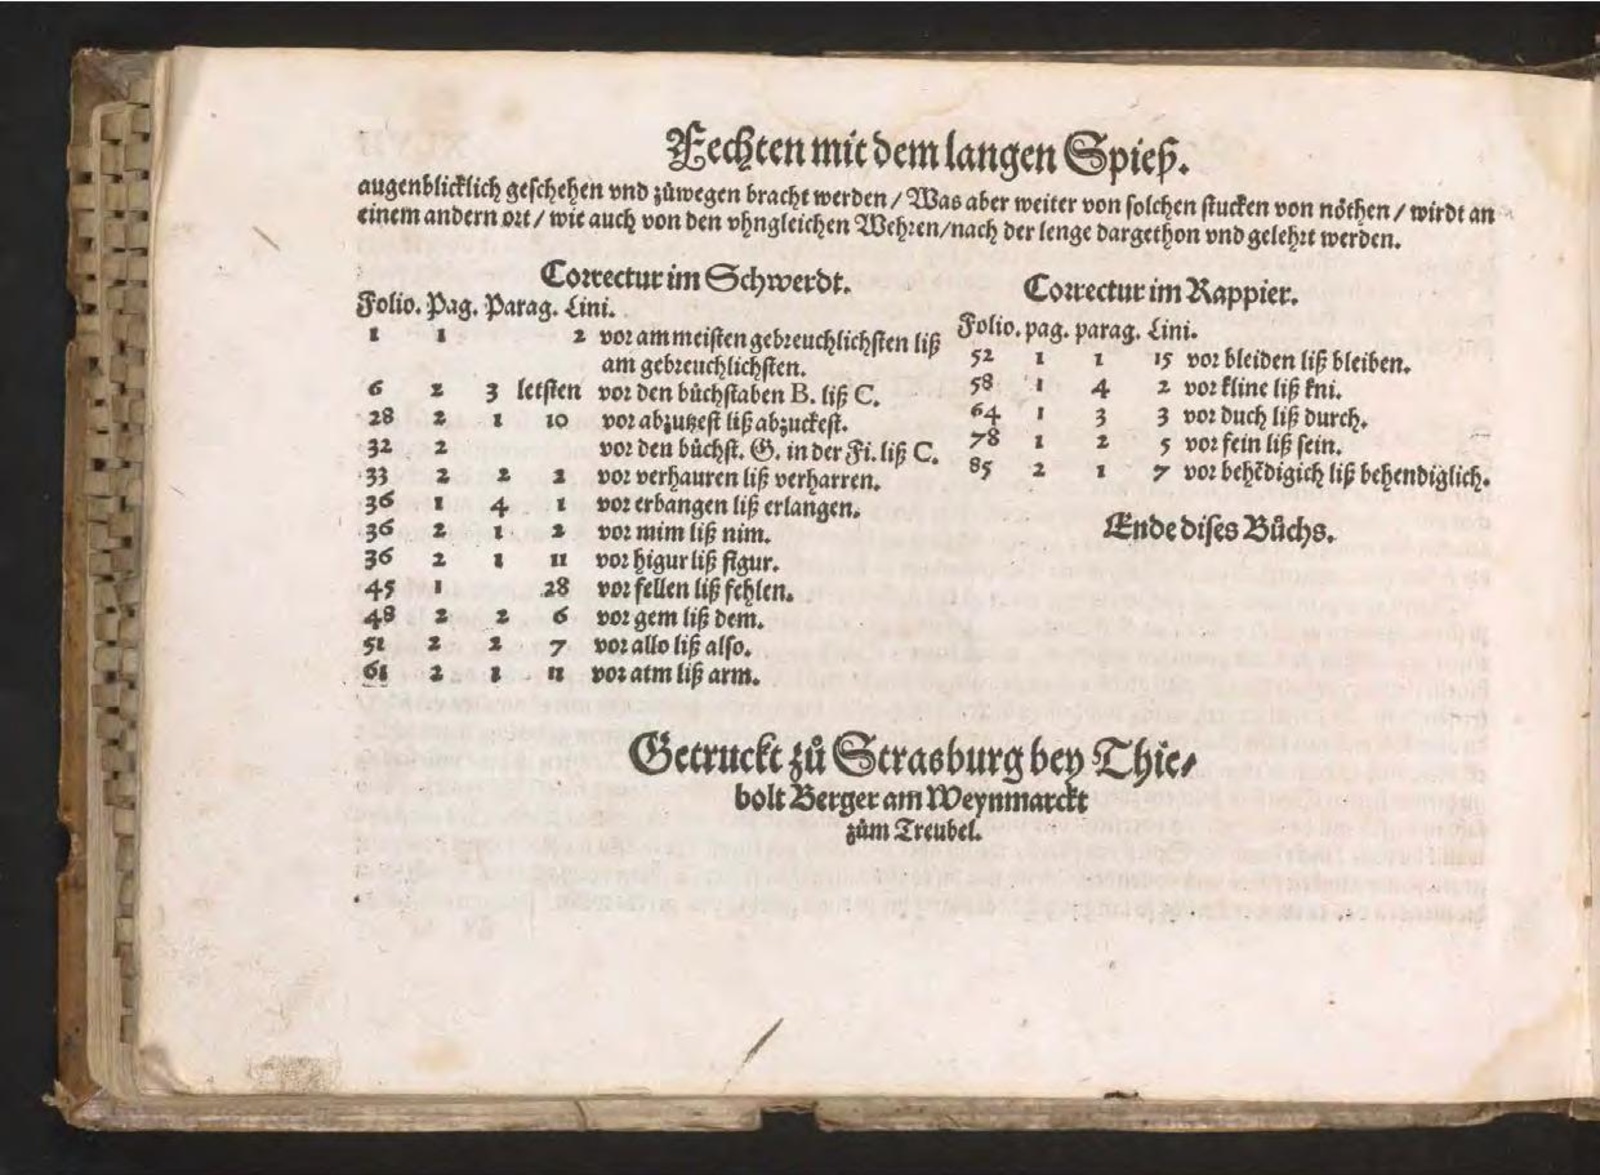 Fechten mit dem langen Spieß.
augenblicklich geschehen vnd zůwegen bracht werden / Was aber weiter von solchen stucken von nöthen / wirdt an
einem andern ort / wie auch von den vhngleichen Wehren / nach der lenge dargethon vnd gelehrt werden.
Correctur im Schwerdt.
Folio. Pag. Parag. Lini.
1 1 2 vor am meisten gebreuchlichsten liß
am gebreuchlichsten.
6 2 3 letsten vor den bůchstaben B. liß C.
28 2 1 10 vor abzutzest liß abzuckest.
32 2 vor den bůchst. G. in der Fi. liß C.
33 2 2 2 vor verhauren liß verharren.
36 1 4 1 vor erbangen liß erlangen.
36 2 1 2 vor mim liß nim.
36 2 1 11 vor higur liß figur.
45 1 28 vor fellen liß fehlen.
48 2 2 6 vor gem liß dem.
51 2 2 7 vor allo liß also.
61 2 1 11 vor atm liß arm.
Correctur im Rappier.
Folio. pag. parag. Lini.
52 1 1 15 vor bleiden liß bleiben.
58 1 4 2 vor kline liß kni.
64 1 3 3 vor duch liß durch.
78 1 2 5 vor fein liß sein.
85 2 1 7 vor behēdigich liß behendiglich.
Ende dises Bůchs.
Getruckt zů Strasburg bey Thie⸗
bolt Berger am Weynmarckt
zům Treubel.